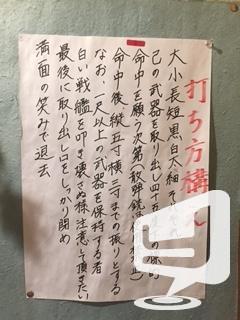 打ち方構え
大小長短黒白太細
己の武器を取り出し四十五度
命中を願う次第
命中後、縦五寸横三寸までの振りとする
なお、一尺以上の武器を保持する者
白い戦艦を叩き壊さぬ様注意して頂きたい
最後に取り出し口をしっかり閉め
満面の笑みで退去